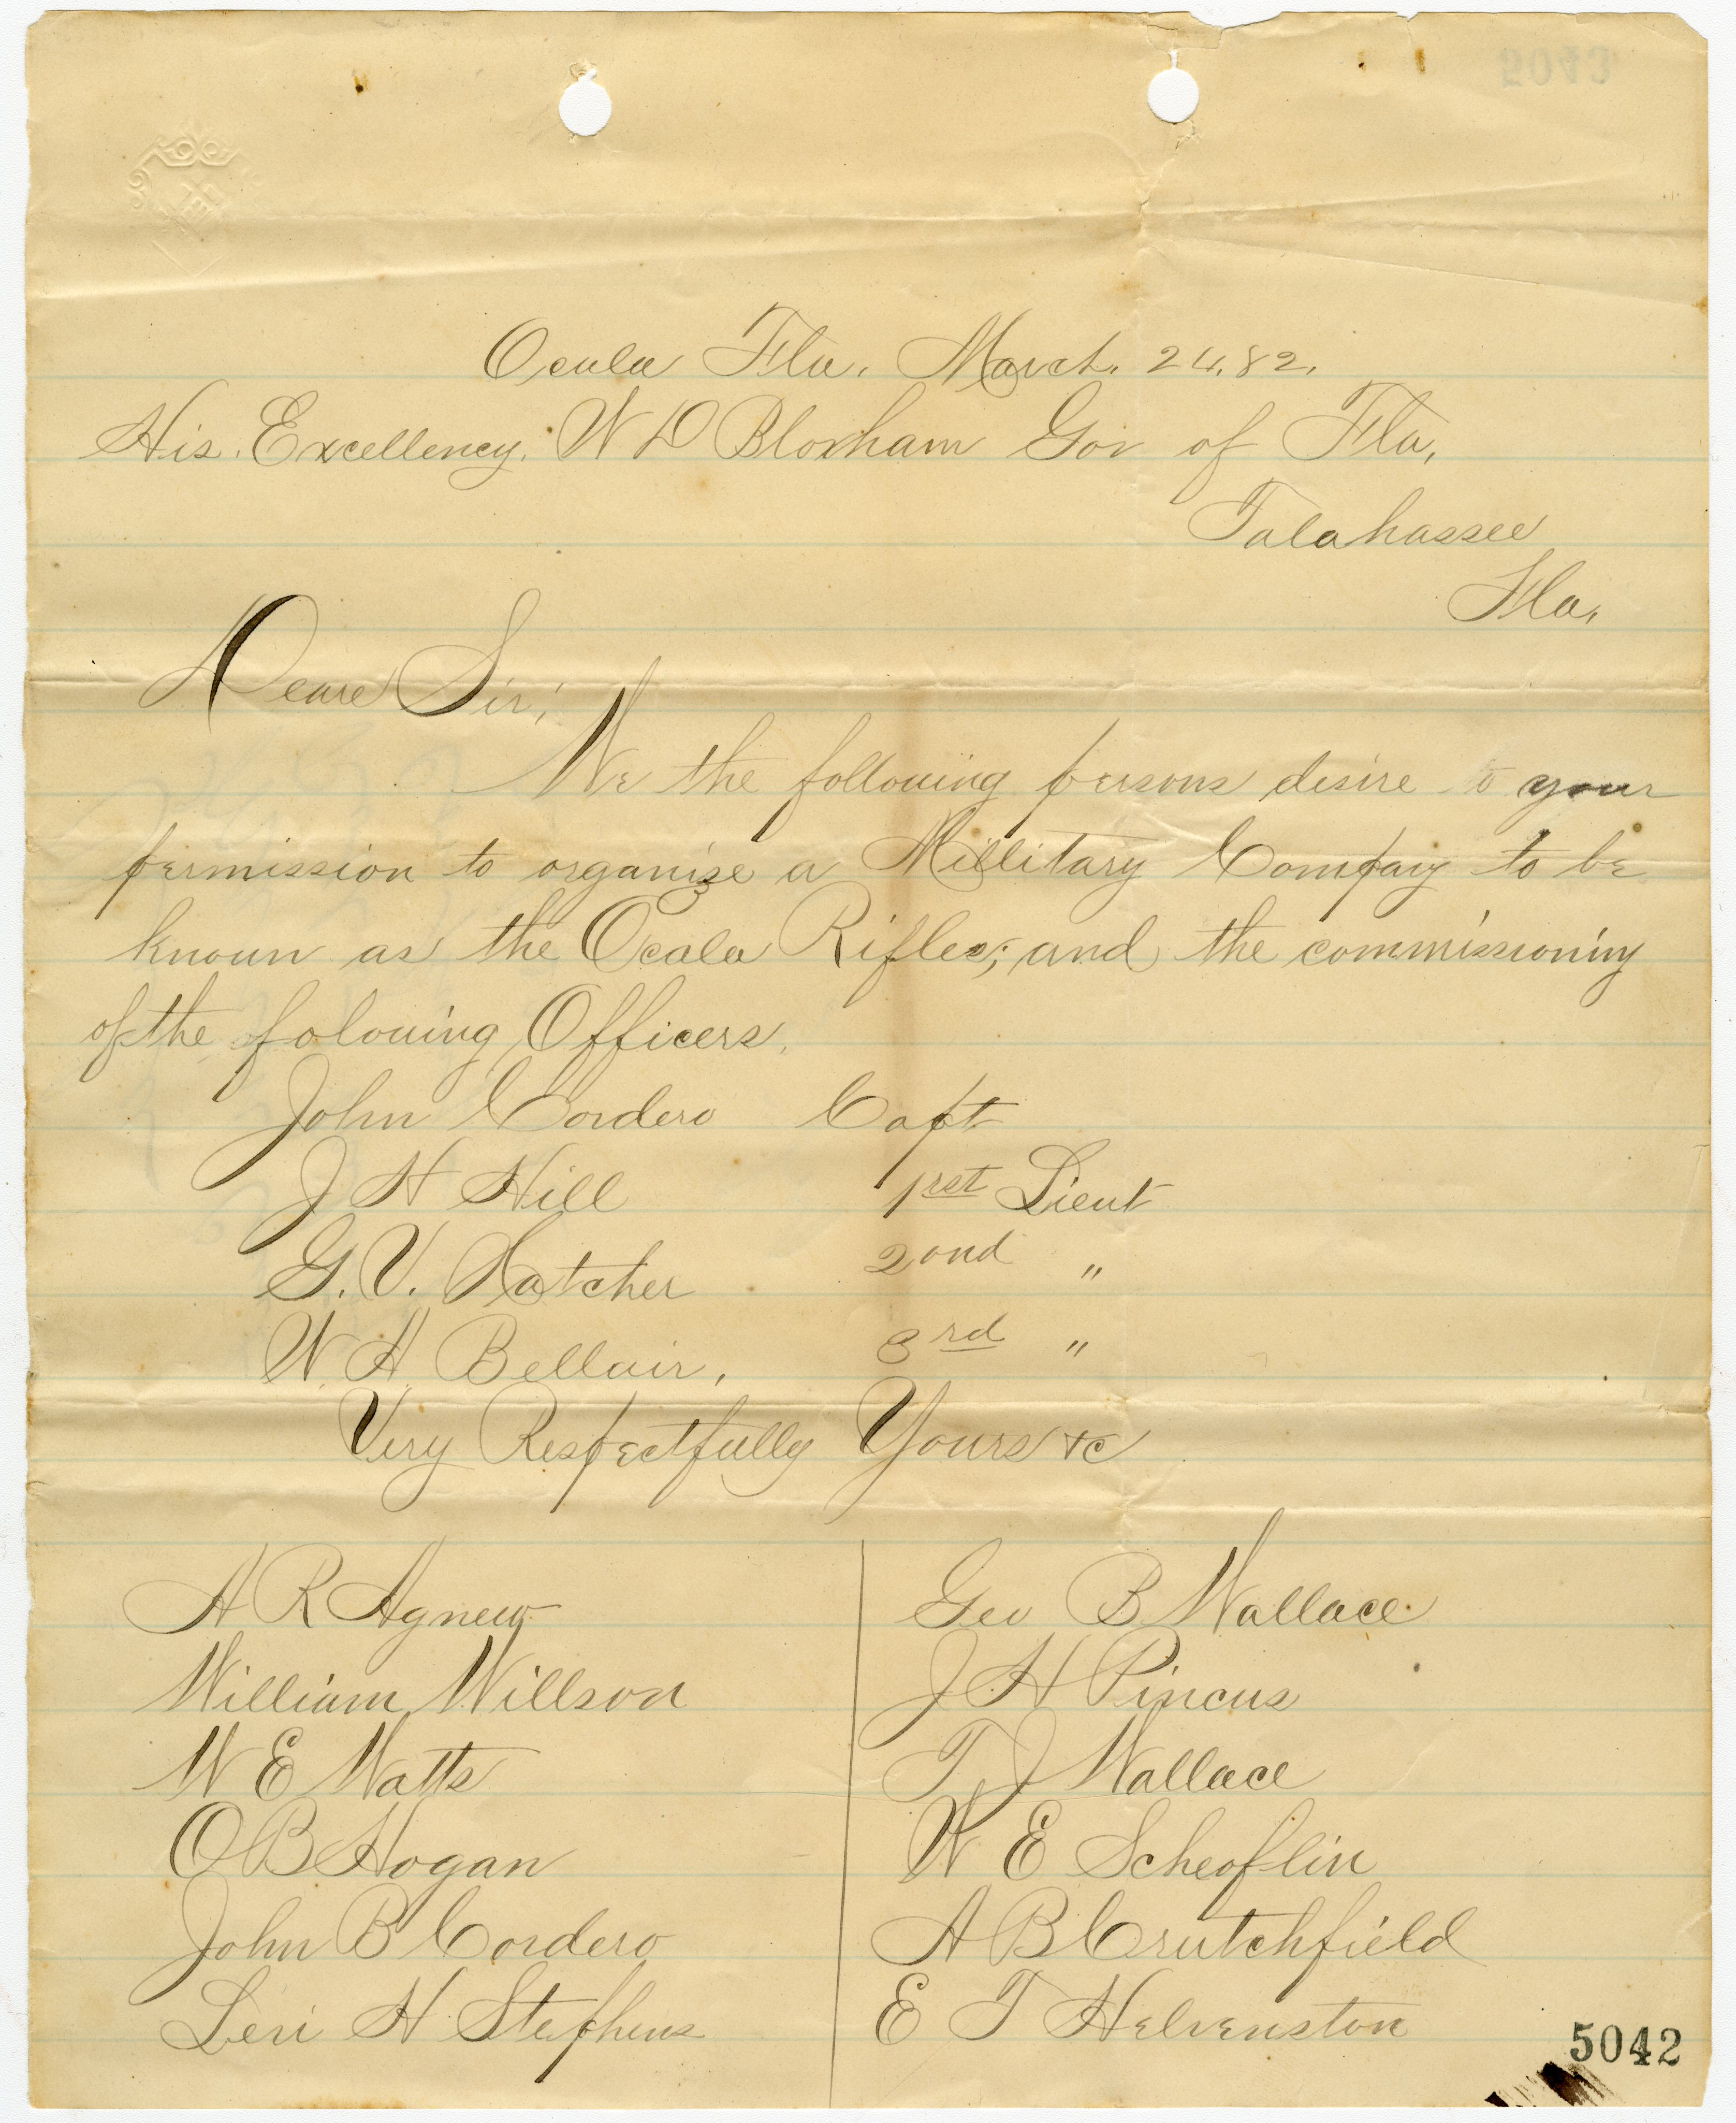 5043
Ocala Fla. March. 24. 82.
His. Excellency. W D Bloxham Gov of Fla,
Talahassee
Fla.
Deare Sir;
We the following persons desire to your
permission to organise a Millitary Company to be
known as the Ocala Rifles; and the commissioning
of the folowing Officers.
John Cordero Capt
J H Hill 1rst Lieut
G. V. Hatcher 2ond "
W. H. Bellair, 3rd "
Very Respectfully Yours &c
A R Agnew
William Willson
W E Watts
O B Hogan
John B Cordero
Levi H Stephens
Geo B Wallace
J H Pincus
T J Wallace
W E Scheoflin
A B Crutchfield
E T Helvenston
5042